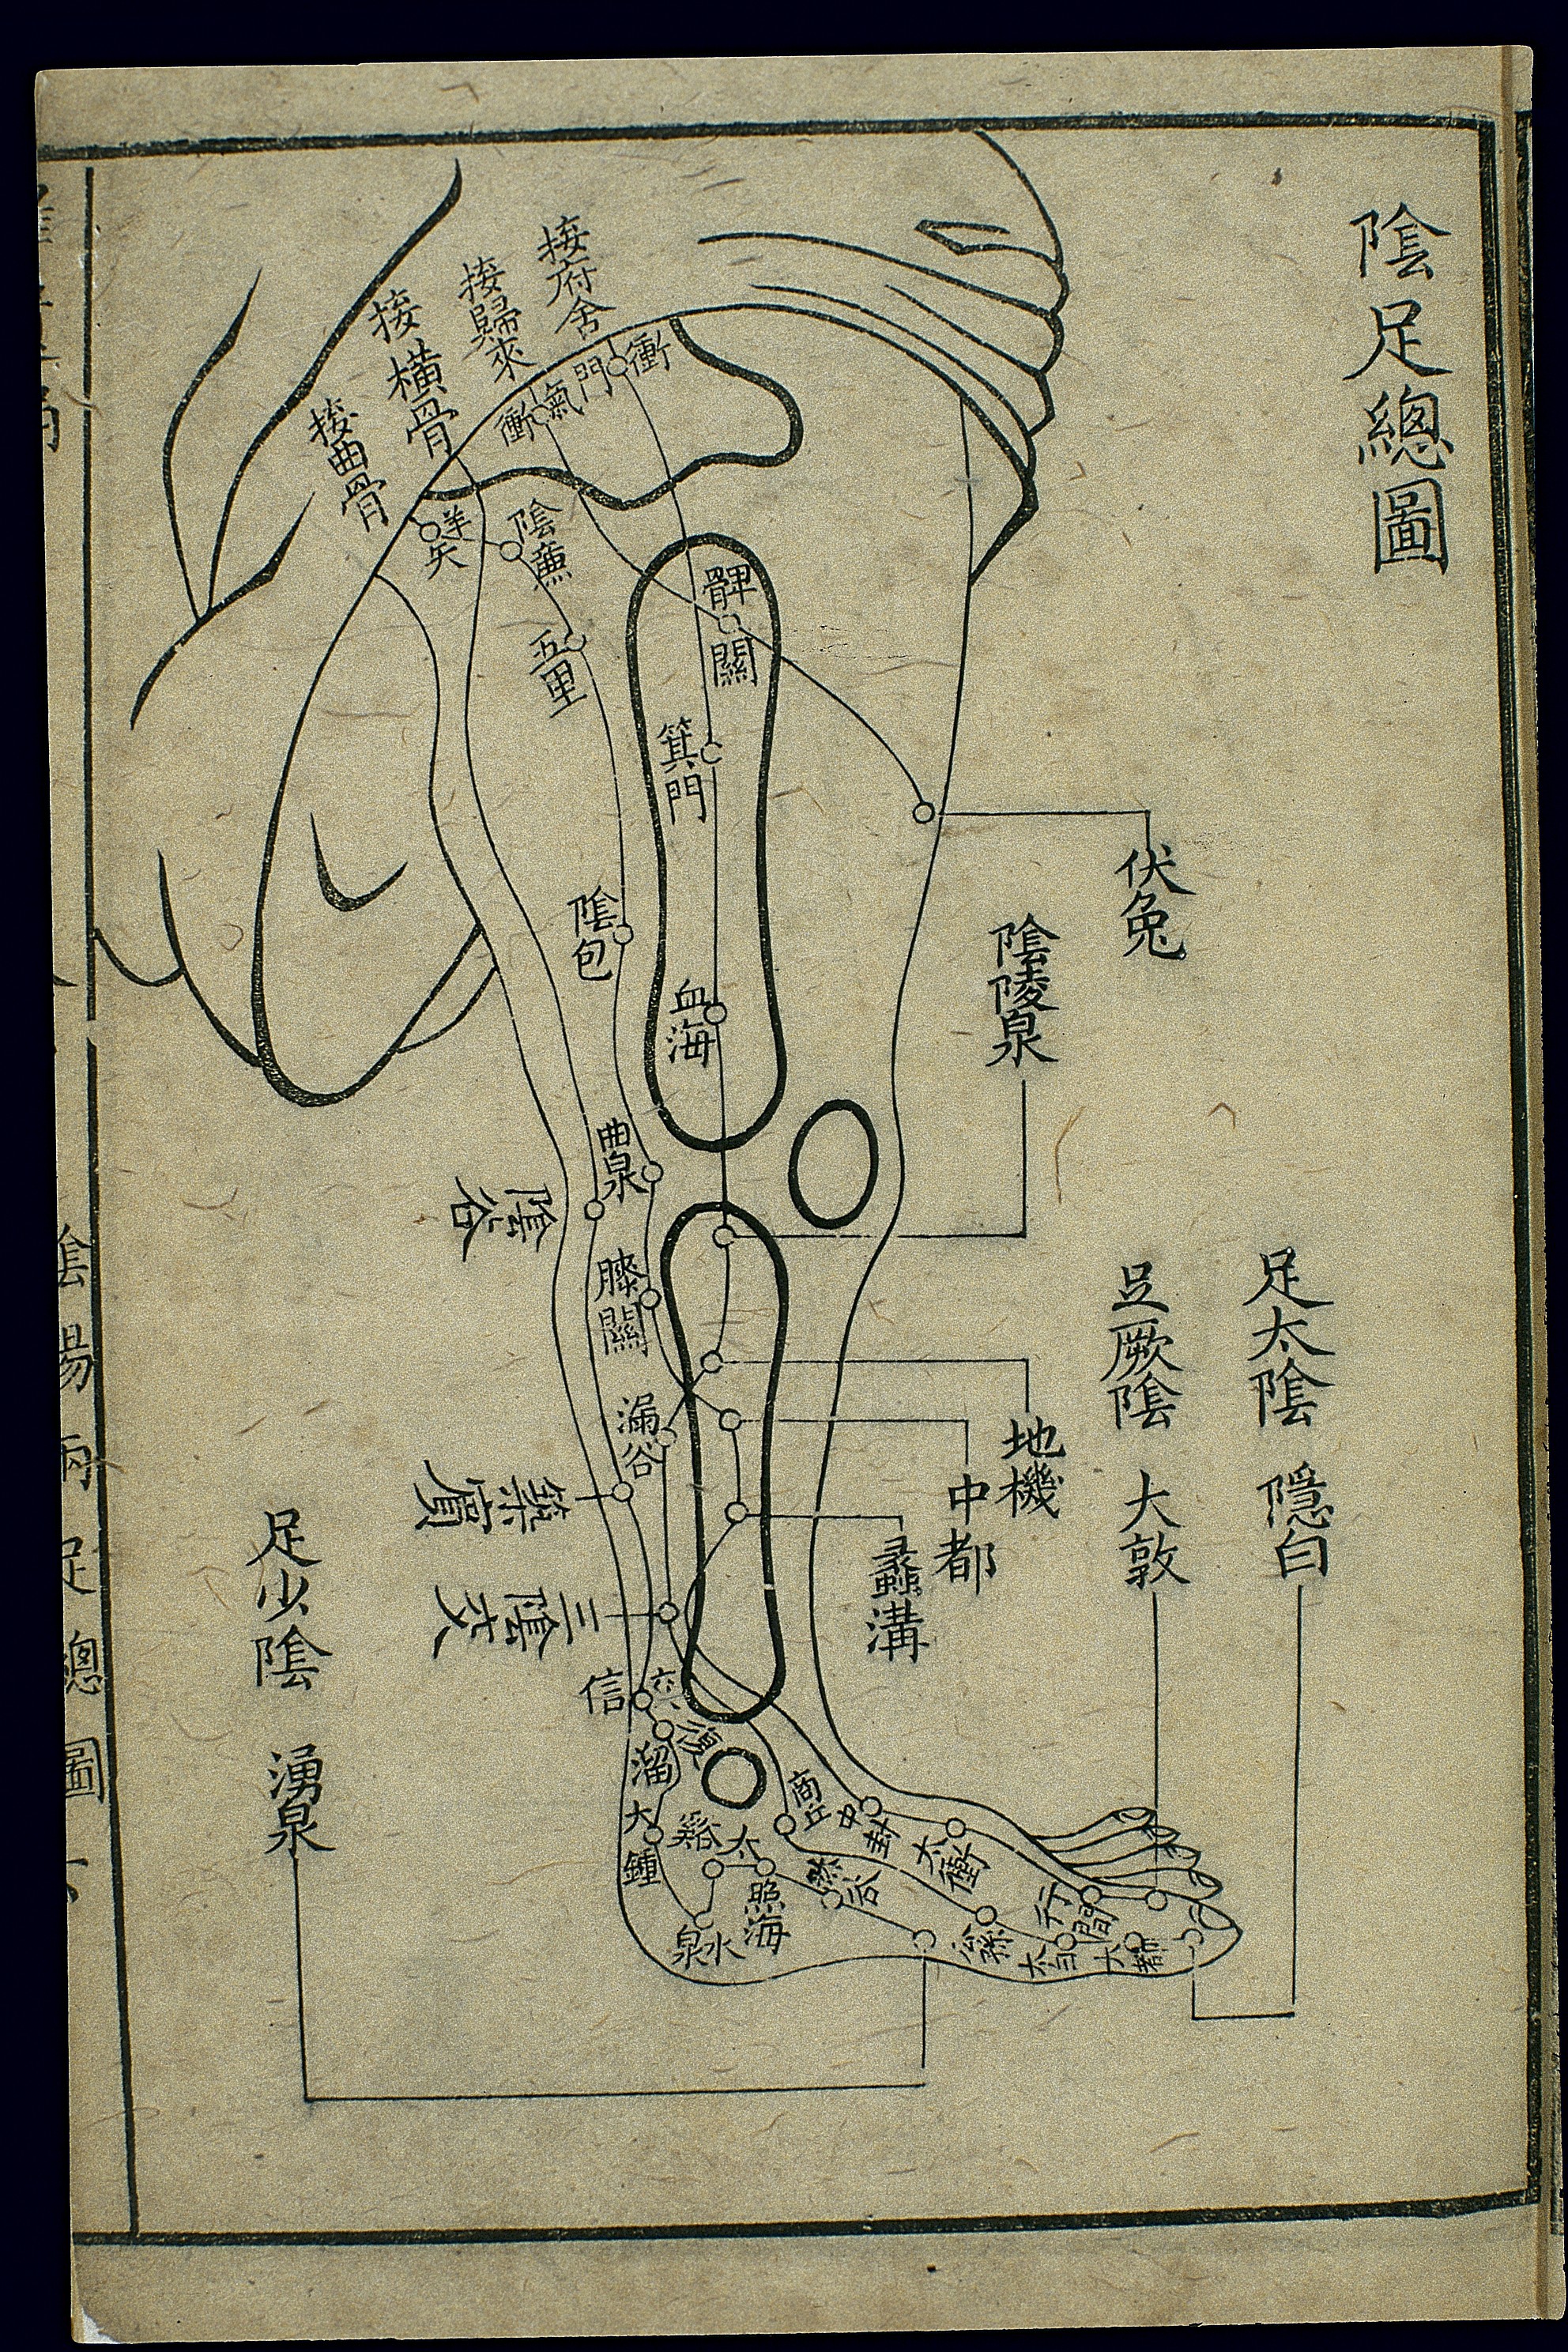 陰足總圖
接府舍
接歸來
接橫骨
接曲骨
衝門
氣衝
羊矢
陰廉
五里
髀關
箕門
伏兔
陰包
血海
陰陵泉
曲泉
陰谷
膝關
地機
漏谷
中都
蠡溝
築賓
三陰交
交信
復溜
足太陰 隱白
足厥陰 大敦
足少陰 湧泉
商丘
中封
太衝
大鍾
太谿
照海
水泉
然谷
行間
公孫
太白
大都
陰陽兩足總圖